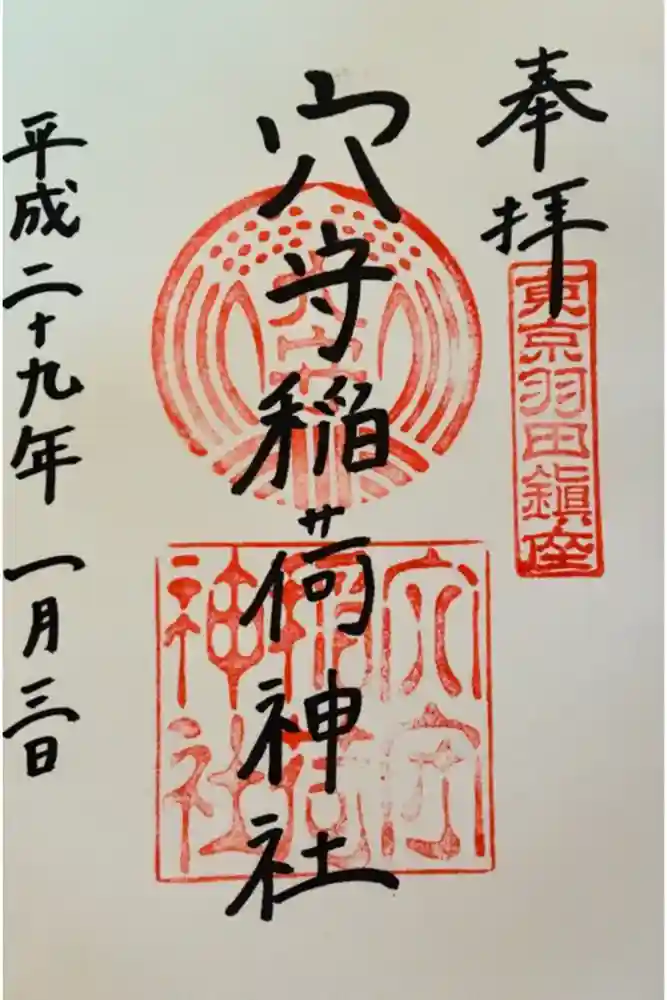 奉拝
東京羽田鎮座
穴守稲荷神社
穴守
稲荷
神社
平成二十九年一月三日